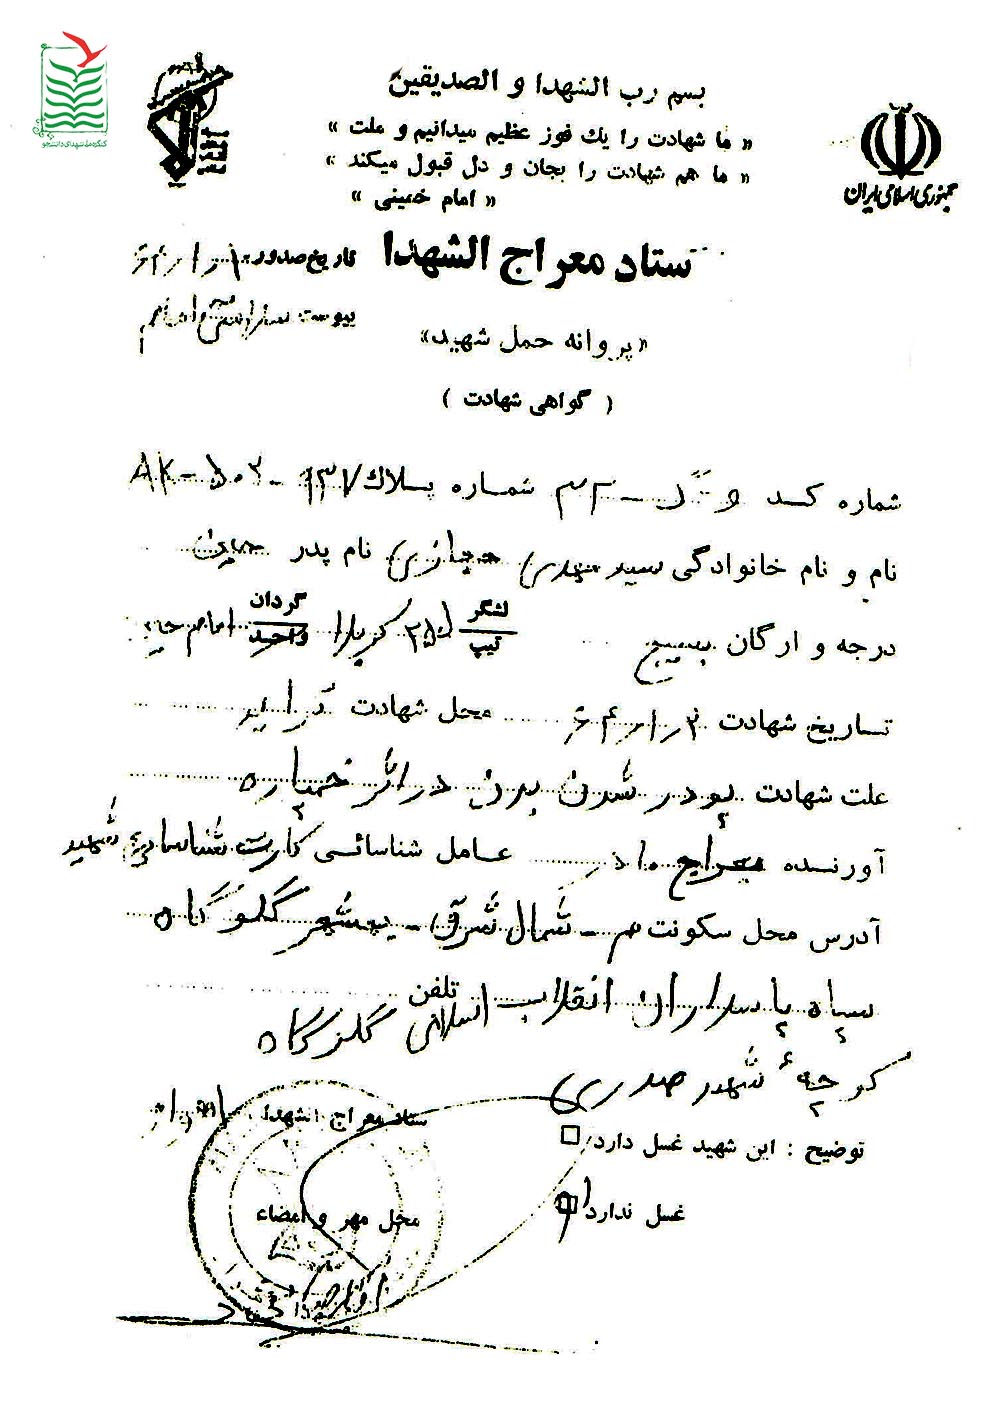 کنگره ملی شهدای دانشجو
بسم رب الشهدا و الصدیقین
« ما شهادت را یك فوز عظیم میدانیم و ملت »
« ما هم شهادت را بجان و دل قبول میکند »
« امام خمینی »
جمهوری اسلامی ایران
ستاد معراج الشهدا
تاریخ صدور
پیوست
«پروانه حمل شهید»
( گواهی شهادت )
شماره کد شماره پلاك ۹۳۷ - ۵۰۳ - AK
نام و نام خانوادگی سید مهدی حجازی نام پدر حسین
درجه و ارگان بسیج لشگر تیپ ۲۵ کربلا گردان واحد امام حسین
تاریخ شهادت محل شهادت
علت شهادت پودر شدن بدن در اثر خمپاره
آورنده معراج عامل شناسائی کارت شناسایی شهید
آدرس محل سکونت م - شمال شرق - بهشهر گلوگاه
سپاه پاسداران انقلاب اسلامی گلوگاه تلفن
کوچهٔ شهید صدری
ستاد معراج الشهدا
توضیح : این شهید غسل دارد
غسل ندارد
محل مهر و امضاء